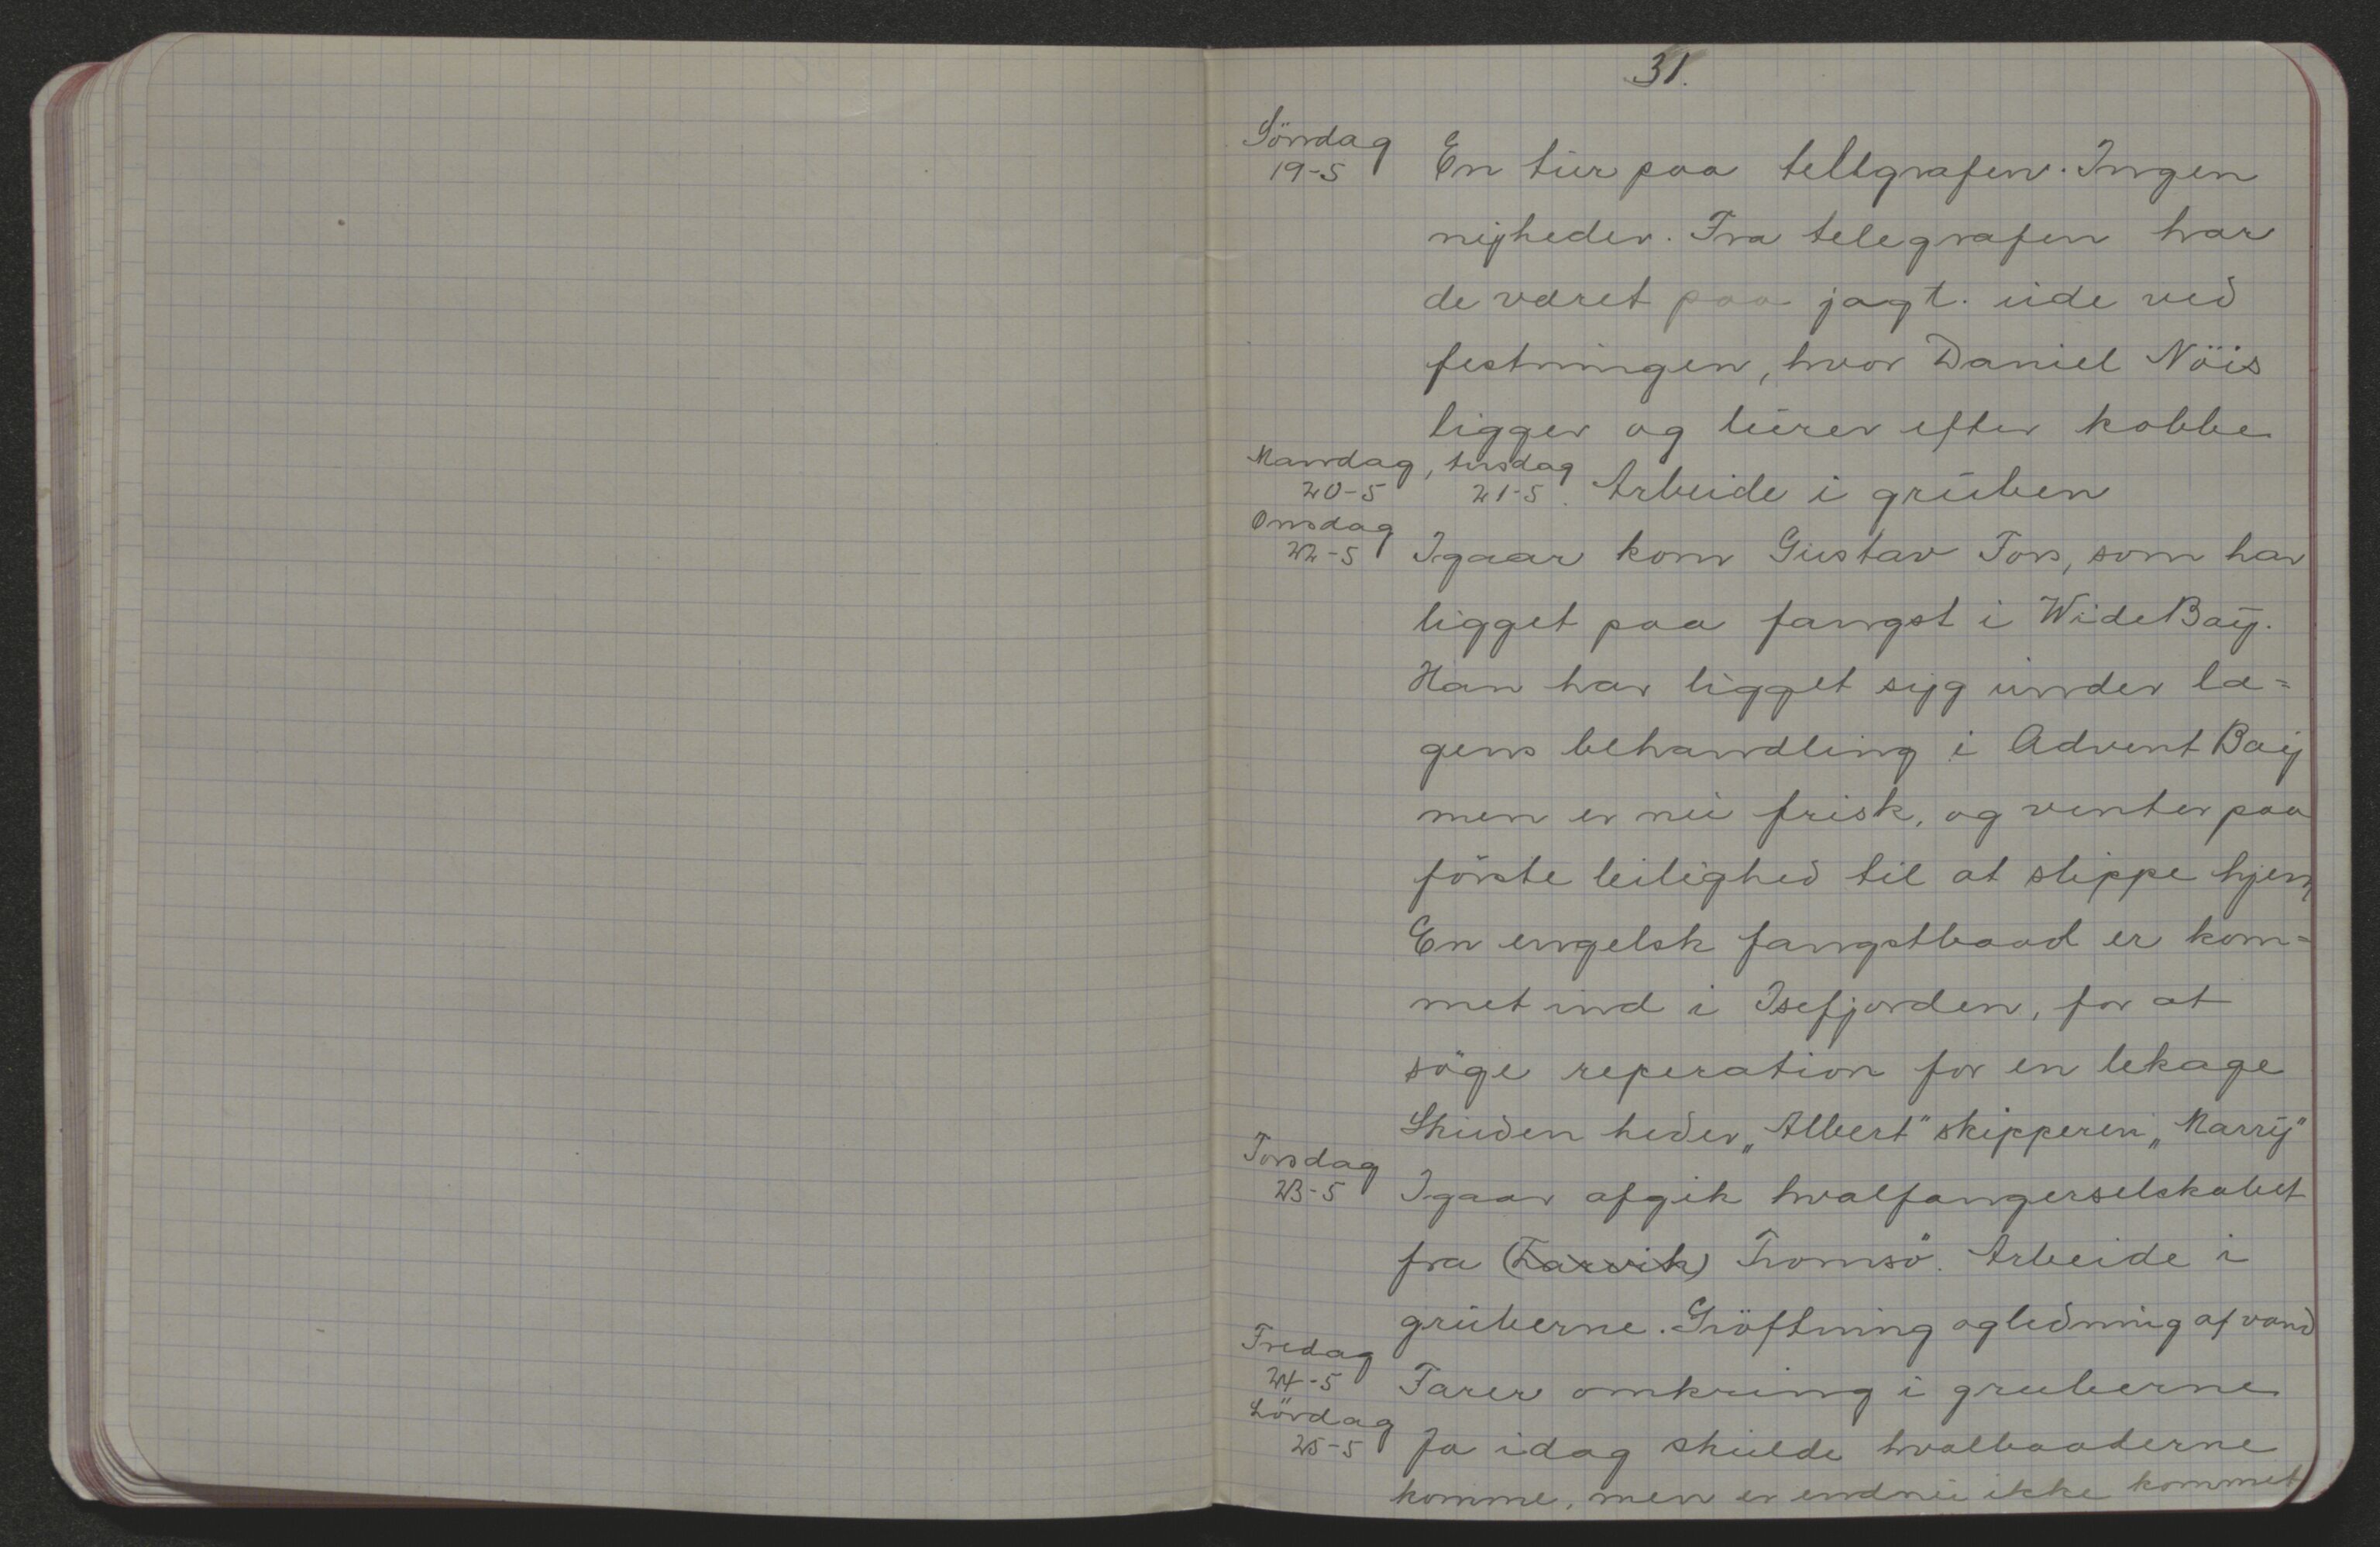 31.
Söndag
19-5 En tur paa tellgrafen. Ingen
nyheder. Fra telegrafen har
de været paa jagt. ude ved
festningen, hvor Daniel Nöis
ligger og lurer efter kobbe
Mandag, tirsdag
20-5 21-5. Arbeide i gruben
Onsdag
22-5 Igaar kom Gustav Tors, som har
ligget paa fangst i WideBay.
Han har ligget syg under læ=
gens behandling i Advent Bay
men er nu frisk, og venter paa
förste leilighed til at slippe hjem
En engelsk fangstbaad er kom=
met ind i Isefjorden, for at
söge reperation for en lekage
Skuden heder „Albert" skipperen „Marry"
Torsdag
23-5 Igaar afgik hvalfangerselskabet
fra (Larvik) Tromsö. Arbeide i
gruberne. Gröftning og ledning af vand
Fredag
24-5 Farer omkring i gruberne
Lördag
25-5 Ja idag skulde hvalbaaderne
komme, men er endnu ikke kommet